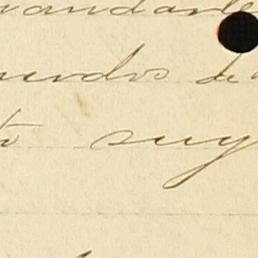 mandarle
uerdos de
to suy